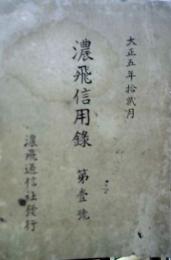 大正五年拾弐月
濃飛信用錄
第壹號
濃飛通信社發行